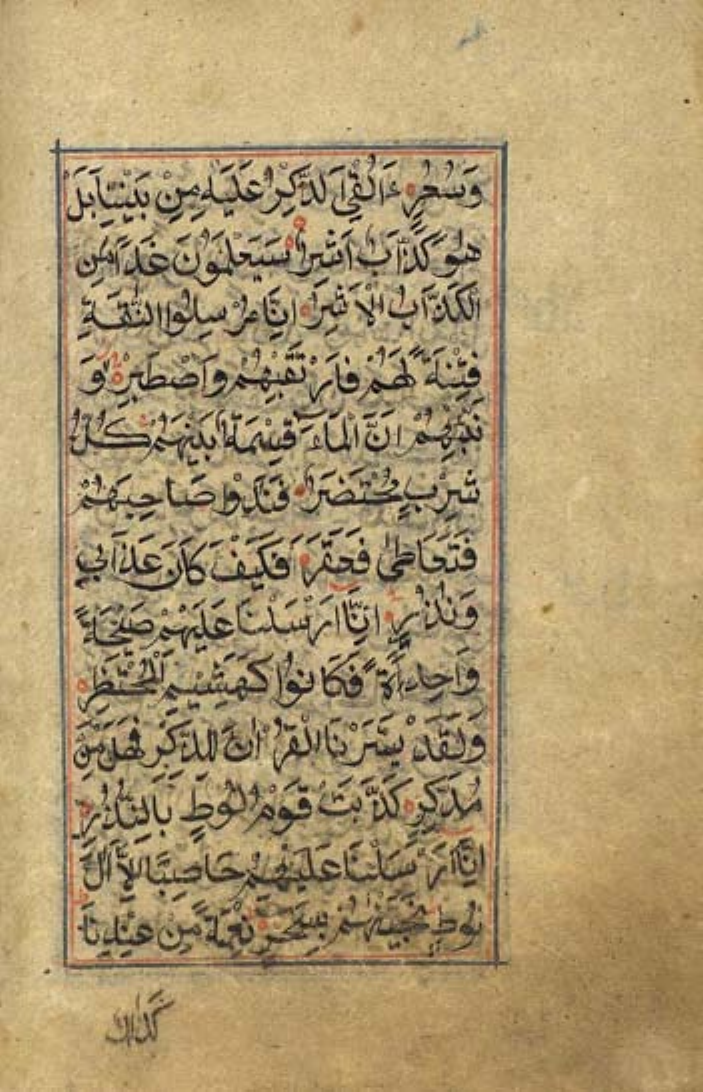 وَسُعُرٍ ءَاُلْقِيَ الذِّكْرُ عَلَيْهِ مِنْ بَيْنِنَا بَلْ
هُوَ كَذَّابٌ اَشِرٌ سَيَعْلَمُونَ غَدًا مَّنِ
الْكَذَّابُ الْاَشِرُ اِنَّا مُرْسِلُوا النَّاقَةِ
فِتْنَةً لَّهُمْ فَارْتَقِبْهُمْ وَاصْطَبِرْ وَ
نَبِّئْهُمْ اَنَّ الْمَاءَ قِسْمَةٌ بَيْنَهُمْ كُلُّ
شِرْبٍ مُحْتَضَرٌ فَنَادَوْا صَاحِبَهُمْ
فَتَعَاطٰى فَعَقَرَ فَكَيْفَ كَانَ عَذَابِي
وَنُذُرِ اِنَّا اَرْسَلْنَا عَلَيْهِمْ صَيْحَةً
وَاحِدَةً فَكَانُوا كَهَشِيمِ الْمُحْتَظِرِ
وَلَقَدْ يَسَّرْنَا الْقُرْاٰنَ لِلذِّكْرِ فَهَلْ مِنْ
مُدَّكِرٍ كَذَّبَتْ قَوْمُ لُوطٍ بِالنُّذُرِ
اِنَّا اَرْسَلْنَا عَلَيْهِمْ حَاصِبًا اِلَّا اٰلَ
لُوطٍ نَجَّيْنٰهُمْ بِسَحَرٍ نِعْمَةً مِّنْ عِنْدِنَا
كَذٰلِكَ